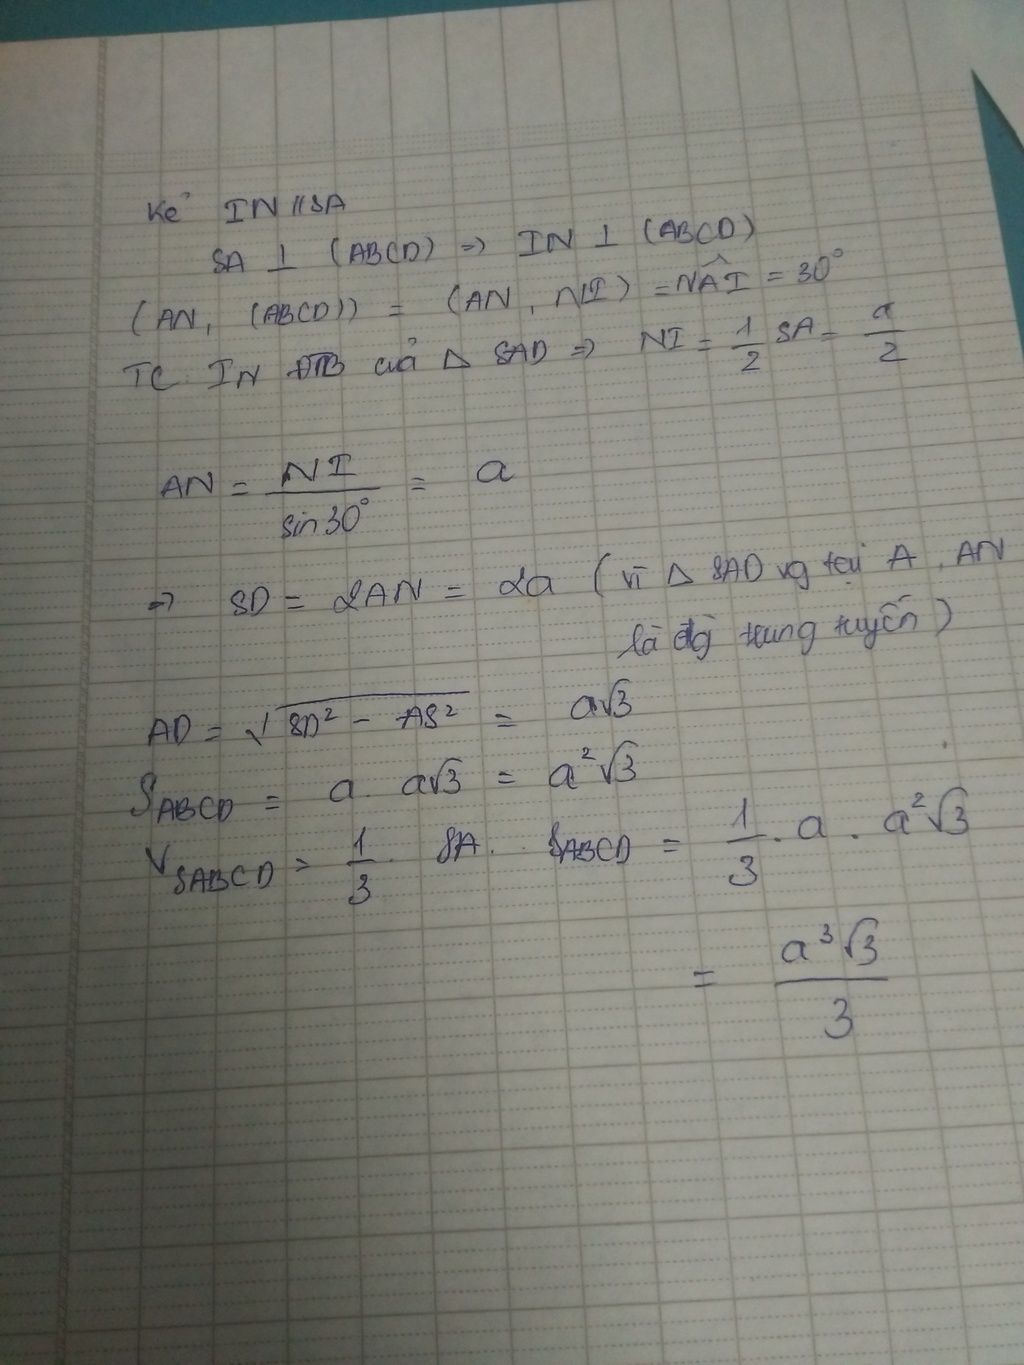 Kẻ IN // SA
SA ⊥ (ABCD) => IN ⊥ (ABCD)
(AN, (ABCD)) = (AN, NI) = NÂI = 30°
TC: IN ĐTB của Δ SAD => NI = 1/2 SA = a/2
AN = NI/sin30° = a
=> SD = 2AN = 2a (vì Δ SAD vg tại A, AN
là đg trung tuyến)
AD = √(SD² - AS²) = a√3
S_ABCD = a . a√3 = a²√3
V_SABCD = 1/3 . SA . S_ABCD = 1/3 . a . a²√3
= a³√3/3